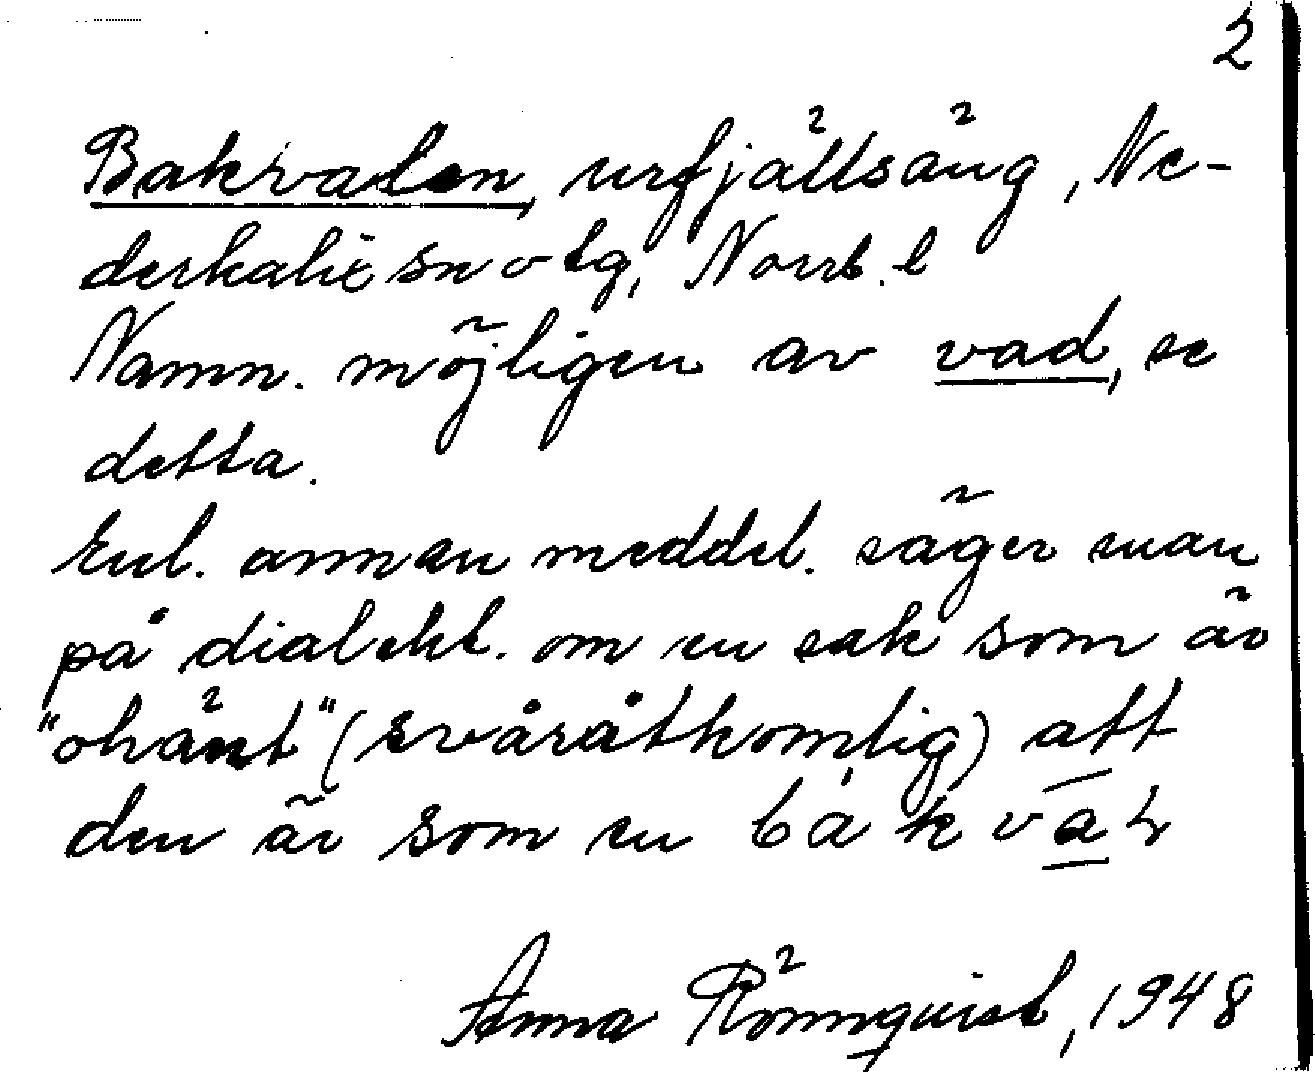 2
Bakvaden, urfjällsäng, Ne-
derkalix sn o tg, Norrb. l
Namn. möjligen av vad, se
detta.
Enl. annan meddel. säger man
på dialekt. om en sak som är
"ohänt" (svåråtkomlig) att
den är som en
Anna Rönnqvist, 1948